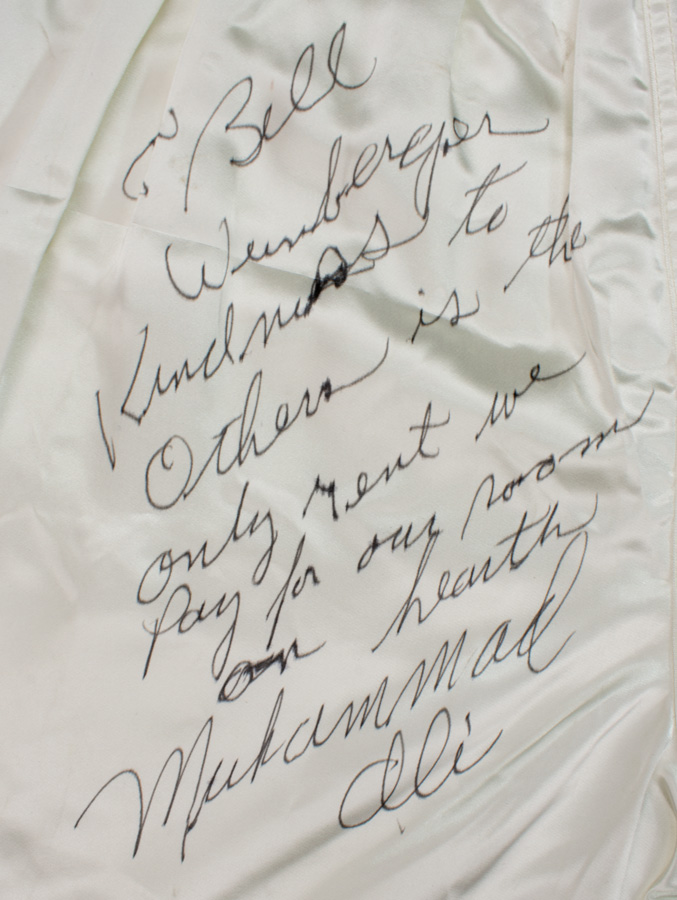 To Bell
Weinberger
Kindness to
Others is the
only rent we
Pay for our room
on hearth
Muhammad
Ali